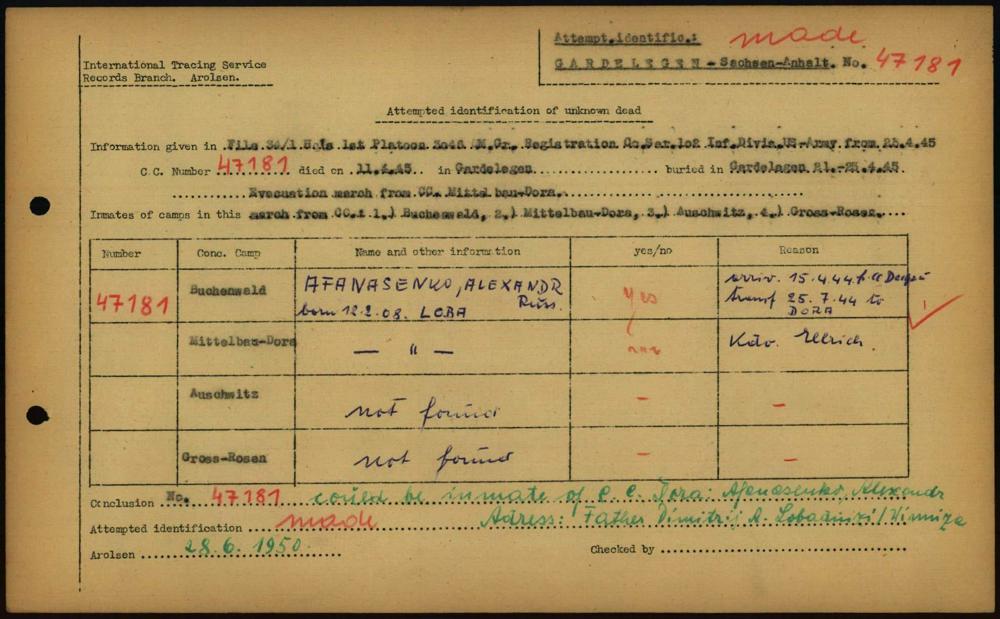 International Tracing Service
Records Branch. Arolsen.
Attempt.identific.: made
GARDELEGEN - Sachsen-Anhalt. No. 47181
Attempted identification of unknown dead
Information given in File 34/1 Hqs 1st Platoon 3046 QM.Gr. Registration Co.Ser.102 Inf.Divis.US-Army from 25.4.45
C.C. Number 47181 died on 11.4.45 in Gardelegen buried in Gardelegen 21.-25.4.45
Evacuation march from CC. Mittelbau-Dora.
Inmates of camps in this march from CC.: 1.) Buchenwald, 2.) Mittelbau-Dora, 3.) Auschwitz, 4.) Gross-Rosen.
Number Conc. Camp Name and other information yes/no Reason
47181 Buchenwald AFANASENKO, ALEXANDR Russ. born 12.2.08. LOBA yes arriv. 15.4.44 transf 25.7.44 to DORA
Mittelbau-Dora — " — Kdo. Ellrich.
Auschwitz not found - -
Gross-Rosen not found - -
Conclusion No. 47181 could be inmate of C.C. Dora: Afanasenko, Alexandr
Attempted identification made Adress: Father Dimitrij A. Winniza
Arolsen 28.6.1950. Checked by